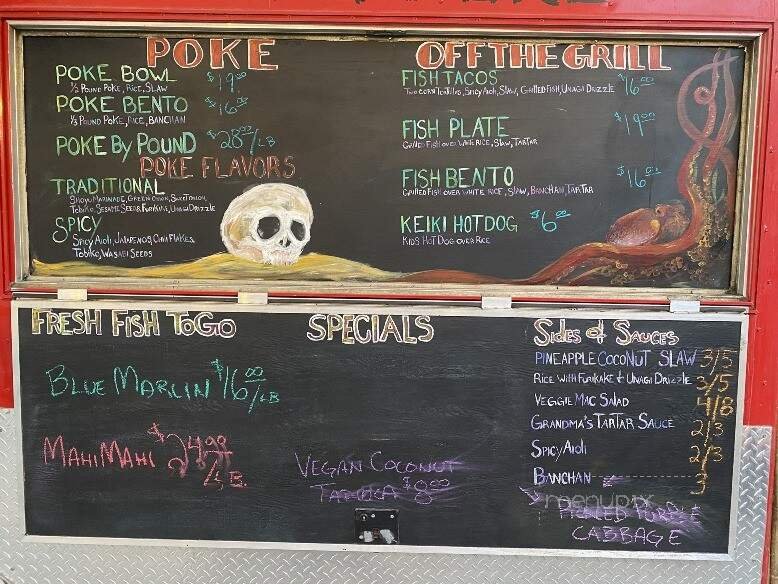 POKE
POKE BOWL $19.00
1/2 POUND POKE, RICE, SLAW
POKE BENTO $16.00
1/3 POUND POKE, RICE, BANCHAN
POKE BY POUND $28.00/LB
POKE FLAVORS
TRADITIONAL
SHOYU MARINADE, GREEN ONION, SWEET ONION,
TOBIKO, SESAME SEEDS, FURIKAKE, UNAGI DRIZZLE
SPICY
SPICY AIOLI, JALAPENOS, CHILI FLAKES,
TOBIKO, WASABI SEEDS
OFF THE GRILL
FISH TACOS $16.00
TWO CORN TORTILLAS, SPICY AIOLI, SLAW, GRILLED FISH, UNAGI DRIZZLE
FISH PLATE $19.00
GRILLED FISH OVER WHITE RICE, SLAW, TARTAR
FISH BENTO $16.00
GRILLED FISH OVER WHITE RICE, SLAW, BANCHAN, TARTAR
KEIKI HOTDOG $6.00
KIDS HOT DOG OVER RICE
FRESH FISH TO GO
BLUE MARLIN $16.00/LB
MAHI MAHI $24.99/LB.
SPECIALS
VEGAN COCONUT
TAPIOCA $8.00
SIDES & SAUCES
PINEAPPLE COCONUT SLAW 3/5
RICE WITH FURIKAKE & UNAGI DRIZZLE 3/5
VEGGIE MAC SALAD 4/8
GRANDMA'S TARTAR SAUCE 2/3
SPICY AIOLI 2/3
BANCHAN 3
menupix
PICKLED PURPLE
CABBAGE